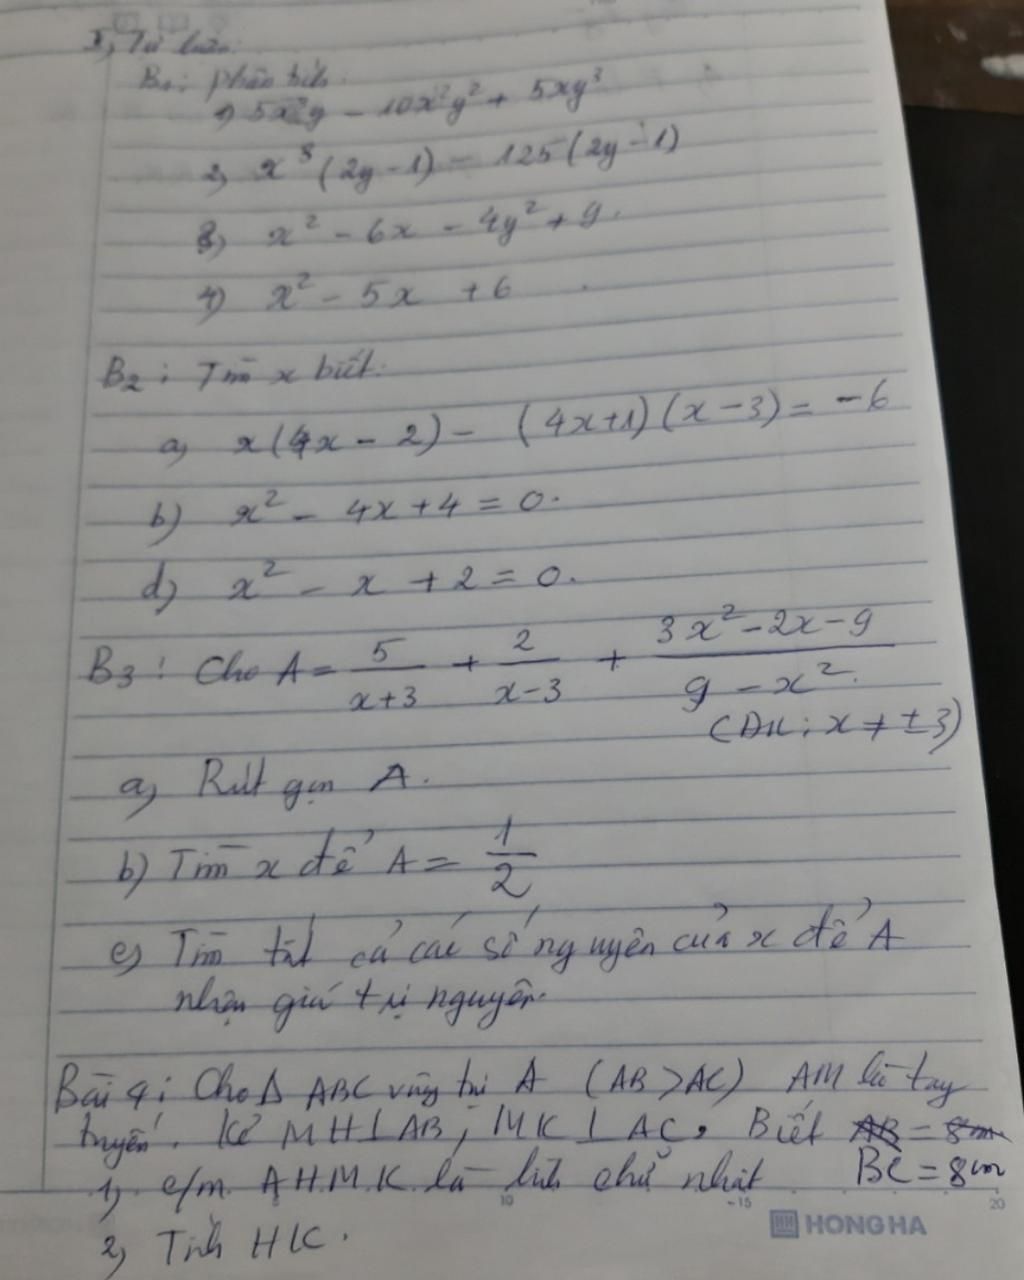 I, Tự luận.
B1: phân tích.
1) 5x³y - 10x²y² + 5xy³
2, x³ (2y - 1) - 125 (2y - 1)
3) x² - 6x - 4y² + 9.
4) x² - 5x + 6
B2 : Tìm x biết:
a, x(4x - 2) - (4x+1)(x-3) = -6
b) x² - 4x + 4 = 0.
d) x² - x + 2 = 0.
B3 : Cho A = 5/(x+3) + 2/(x-3) + (3x² - 2x - 9)/(9 - x²)
(ĐK: x ≠ ±3)
a, Rút gọn A.
b) Tìm x để A = 1/2
c) Tìm tất cả các số nguyên của x để A
nhận giá trị nguyên.
Bài 4 : Cho Δ ABC vuông tại A (AB > AC) AM là trung
tuyến. Kẻ MH ⊥ AB, MK ⊥ AC. Biết AB = 8cm
BC = 8cm
1, c/m. AHMK là hình chữ nhật
2, Tính HK.
10 15 20
HONG HA